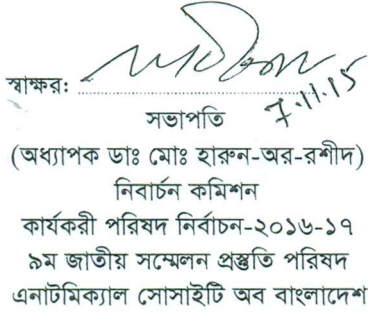 স্বাক্ষর:
7.11.15
সভাপতি
(অধ্যাপক ডাঃ মোঃ হারুন-অর-রশীদ)
নির্বাচন কমিশন
কার্যকরী পরিষদ নির্বাচন-২০১৬-১৭
৯ম জাতীয় সম্মেলন প্রস্তুতি পরিষদ
এনাটমিক্যাল সোসাইটি অব বাংলাদেশ